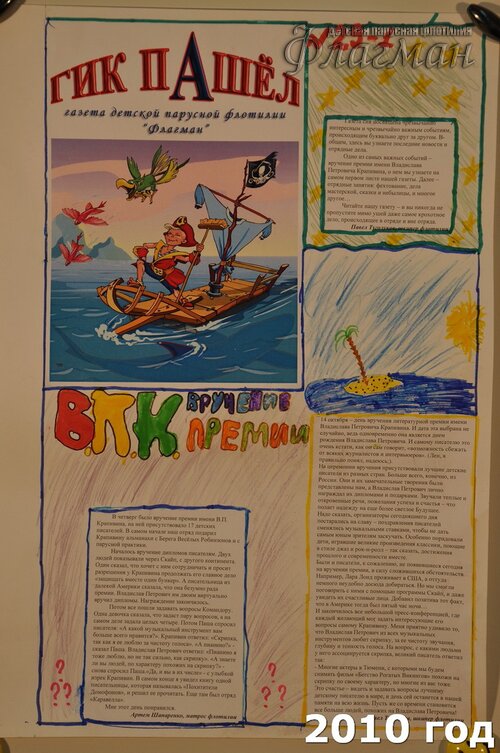 детская парусная флотилия
Флагман
№2,3-4
ГИК ПАШЁЛ
газета детской парусной флотилии
"Флагман"
Газета она посвящена чрезвычайно
интересным и чрезвычайно важным событиям,
происходящим буквально друг за другом. В-
общем, здесь вы узнаете последние новости и
отрядные дела.
Одно из самых важных событий –
вручение премии имени Владислава
Петровича Крапивина, о нем вы узнаете на
самом первом листе нашей газеты. Далее –
отрядные занятия: фехтование, дела
мастерской, сказки и небылицы, и многие
другое…
Читайте нашу газету – и вы никогда не
пропустите мимо ушей даже самое крохотное
дело, происходящее в отряде и вне отряда.
Павел
В.П.К. ВРУЧЕНИЕ
ПРЕМИИ
14 октября – день вручения литературной премии имени
Владислава Петровича Крапивина. И дата эта выбрана не
случайно, ведь одновременно она является днем
рождения Владислава Петровича. И самому писателю это
очень кстати, как он сам говорит, «возможность сбежать
от всяких журналистов и интервьюеров». (Лен, я
правильно помню, надеюсь;).
На церемонии вручения присутствовали лучшие детские
писатели из разных стран. Больше всего, конечно, из
России. Они и их замечательные творения были
представлены нам, а Владислав Петрович лично
награждал их дипломами и подарками. Звучали теплые и
откровенные речи, пожелания успеха и счастья – что
подает надежду на еще более светлое Будущее.
Надо сказать, организаторы сегодняшнего дня
постарались на славу – поздравления писателей
сменялись музыкальными ставками, чтобы не дать
самым юным зрителям заскучать. Особенно порадовали
дети, игравшие великие произведения классики, поющие
в стиле джаз и рок-н-ролл – так сказать, достижения
прошлого и современности смешались.
Были и писатели, к сожалению, не появившиеся сегодня
на вручении премии, в силу сложившихся обстоятельств.
Например, Дара Лонд проживает в США, а оттуда
немного неудобно доехать добираться. Но мы смогли
поговорить с ними с помощью программы Скайп, и даже
увидеть их счастливые лица. Добавил позитива тот факт,
что в Америке тогда был пятый час ночи…
И закончилось все небольшой пресс-конференцией, где
каждый желающий мог задать интересующие его
вопросы самому Крапивину. Меня приятно удивило то,
что Владислав Петрович из всех музыкальных
инструментов любит скрипку, за ее чистоту звучания,
глубину и тонкость голоса. На вопрос, с какими людьми
у него ассоциируется скрипка, великий писатель ответил
так:
- Многие актеры в Тюмени, с которыми мы будем
снимать фильм «Бегство Рогатых Викингов» похожи на
скрипку по своему характеру, но многие из вас тоже
Это счастье – видеть и задавать вопросы лучшему
детскому писателю в мире, и день сей останется в нашей
памяти на всю жизнь. Пусть же со временем становится
все больше людей, похожих на Владислава Петровича!
В четверг было вручение премии имени В.П.
Крапивина, на ней присутствовало 17 детских
писателей. В самом начале наш отряд подарил
Крапивину альманах с Берега Весёлых Робинзонов и с
парусной практики.
Началось вручение дипломов писателям. Двух
людей показывали через Скайп, с другого континента.
Один сказал, что хочет с ним сотрудничать и просит
разрешения у Крапивина продолжить его главное дело
«защищать вместе один бункер». А писательница из
далекой Америки сказала, что она безумно рада
премии. Владислав Петрович им двоим виртуально
вручил дипломы. Награждение закончилось.
Потом все пошли задавать вопросы Командору.
Одна девочка сказала, что задаст пару вопросов, а на
самом деле задала целых четыре. Потом Паша спросил
писателя: «А какой музыкальный инструмент вам
больше всего нравится?». Крапивин ответил: «Скрипка,
так как я ее люблю за чистоту голоса». «А пианино?» -
сказал Паша. Владислав Петрович ответил: «Пианино я
тоже люблю, но не так сильно, как скрипку». «А знаете
ли вы людей, по характеру похожих на скрипку?» -
снова спросил Паша.«Да, и мы в их числе» - с улыбкой
изрек Крапивин. В самом конце я взял книгу одной
писательницы, которая называлась «Похитители
Домофонов», и решил ее прочитать. Ещё там был отряд
«Каравелла»
Мне этот день понравился.
Артем Шипаренко, матрос флотилии
? ? ?
? ? ?
2010 год